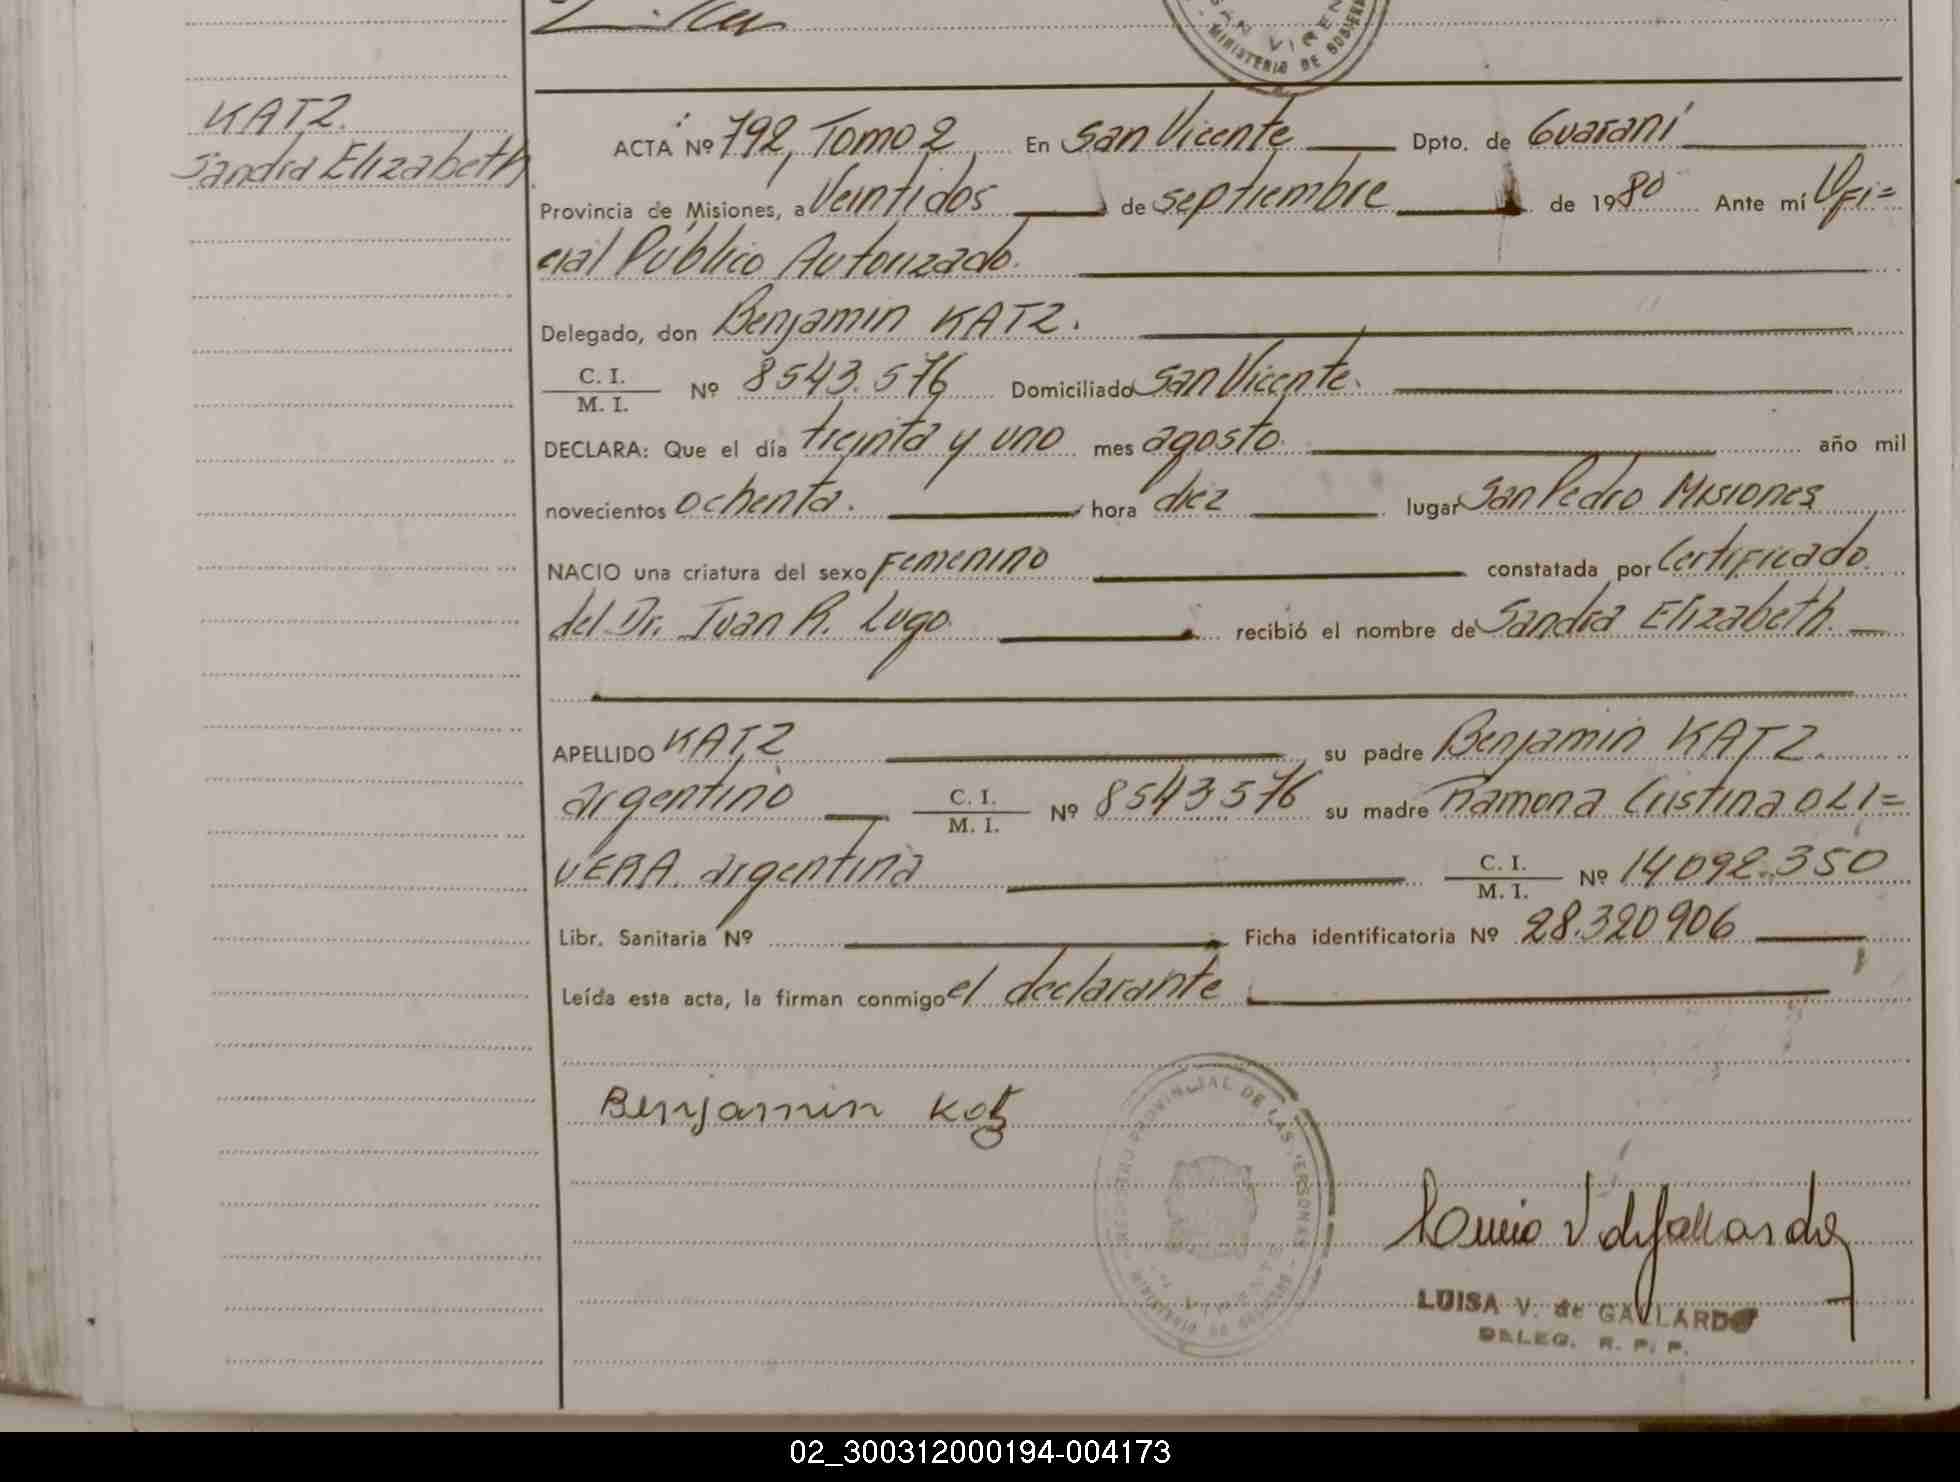 SAN VICENTE
MINISTERIO DE GOBIERNO
KATZ.
Sandra Elizabeth.
ACTA Nº 792, Tomo 2 En San Vicente Dpto. de Guaraní
Provincia de Misiones, a Veintidos de septiembre de 1980 Ante mí Ofi=
cial Público Autorizado.
Delegado, don Benjamin KATZ.
C. I.
M. I. Nº 8543.576 Domiciliado San Vicente.
DECLARA: Que el día treinta y uno mes agosto. año mil
novecientos ochenta. hora diez lugar San Pedro Misiones
NACIO una criatura del sexo Femenino constatada por Certificado
del Dr. Juan R. Lugo. recibió el nombre de Sandra Elizabeth.
APELLIDO KATZ su padre Benjamin KATZ.
argentino C. I.
M. I. Nº 8543576 su madre Ramona Cristina OLI=
VERA. argentina C. I.
M. I. Nº 14092.350
Libr. Sanitaria Nº Ficha identificatoria Nº 28.320906
Leída esta acta, la firman conmigo el declarante
Benjamin Katz
REGISTRO PROVINCIAL DE LAS PERSONAS
MINISTERIO DE GOBIERNO
LUISA V. de GALLARDO
DELEG. R. P. P.
02_300312000194-004173